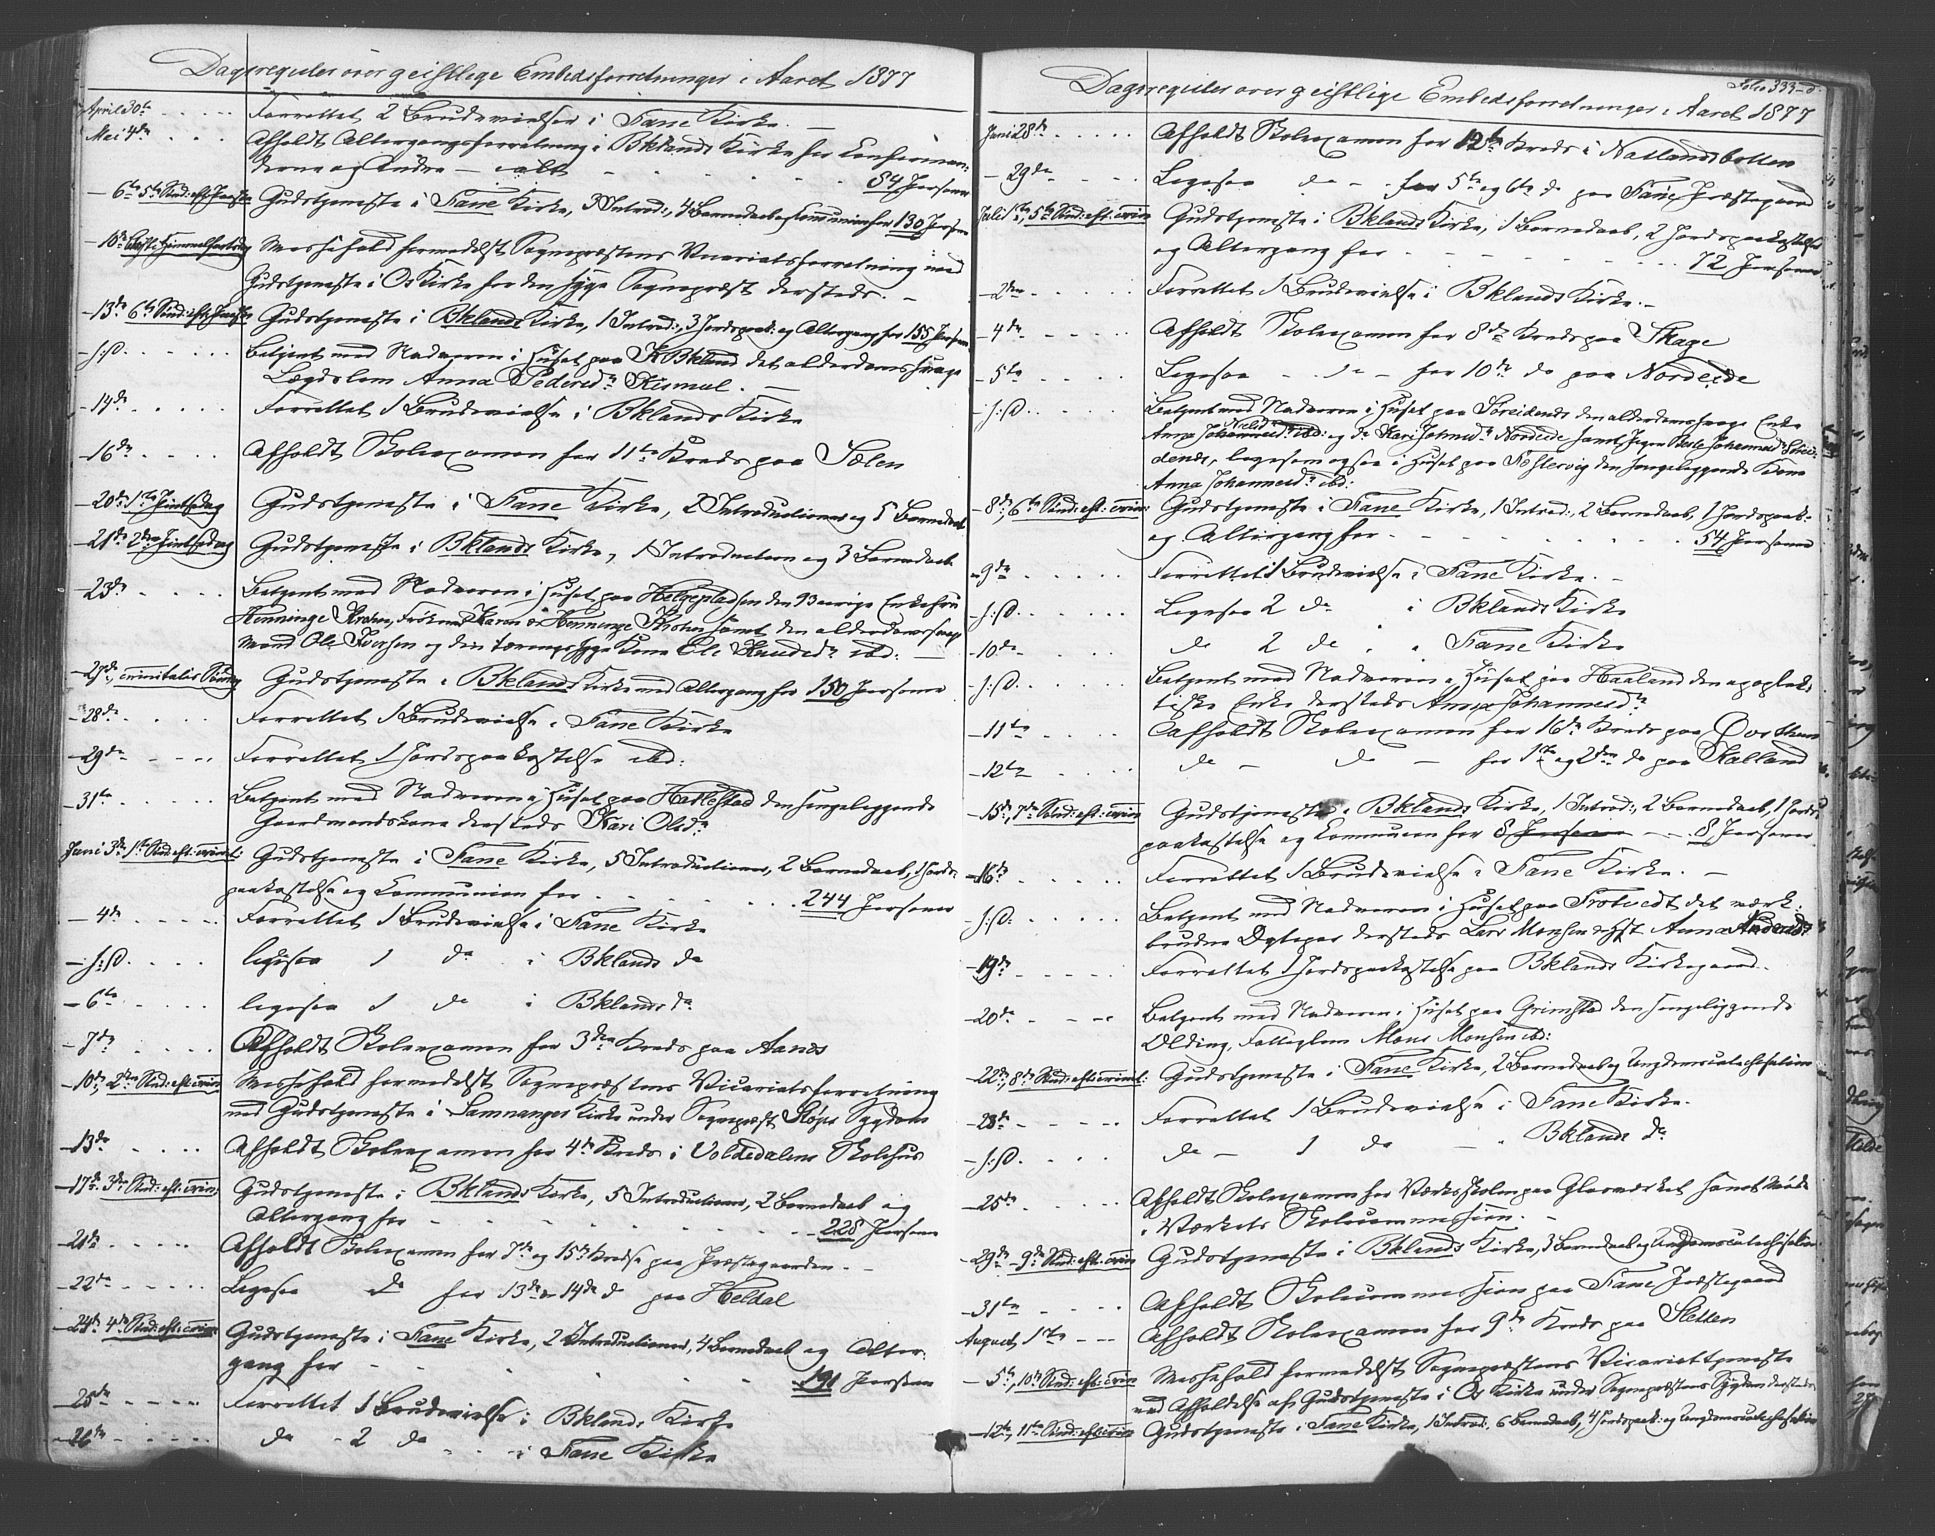 Dagsregister over geistlige Embedsforretninger i Aaret 1877
April 30te Forrettet 2 Brudevielser i Fane Kirke.
Mai 4de Afholdt Altergangsforretning i Bklands Kirke for Confirman-
derne og Andre — ialt 54 Personer
— 6te 5te Sønd: eft. Paaske Gudstjeneste i Fane Kirke, 3 Introd:, 4 Barnedaab og Communion for 130 Person
— 10de Christi Himmelfartsdag Messefald formedelst Sognepræstens Vicariatsforretning med
Gudstjeneste i Os Kirke for den syge Sognepræst dersteds. —
— 13de 6te Sønd: eft. Paaske Gudstjeneste i Bklands Kirke, 1 Introd:, 3 Jordspaak: og Altergang for 155 Person
— s: D. Betjent med Nadveren i Huset paa K Bkland det alderdomssvage
Lægdslem Anna Pedersdr Kismul. —
— 14de Forrettet 1 Brudevielse i Bklands Kirke
— 16de Afholdt Skolexamen for 11te Kreds paa Sælen
— 20de 1ste Pintsedag Gudstjeneste i Fane Kirke, 2 Introductioner og 5 Barnedaab
— 21de 2den Pintsedag Gudstjeneste i Bklands Kirke, 1 Introduction og 3 Barnedaab
— 23de Betjent med Nadveren i Huset paa Helgepladsen den 93 aarige Enkefru
Henninge Krohn, Frøknerne Karen & Henninge Krohn samt den alderdomssvage
Mand Ole Iversen og den tæringssyge Kone Eli Knudsdr ibd: —
— 27de, Trinitatis Søndag Gudstjeneste i Bklands Kirke med Altergang for 150 Personer
— 28de Forrettet 1 Brudevielse i Fane Kirke
— 29de Forrettet 1 Jordspaakastelse ibd:
— 31te Betjent med Nadveren i Huset paa Hatlestad den sengeliggende
Gaardmandskone dersteds Kari Olsdr
Juni 3de 1ste Sønd: eft: Trinit: Gudstjeneste i Fane Kirke, 5 Introductioner, 2 Barnedaab, 1 Jords-
paakastelse og Communion for 244 Personer
— 4de Forrettet 1 Brudevielse i Fane Kirke
— s: D. ligesaa 1 do i Bklands do
— 6te ligesaa 1 do i Bklands do
— 7de Afholdt Skolexamen for 3die Kreds paa Aanes
— 10de, 2den Sønd: eft: Trin: Messefald formedelst Sognepræstens Vicariatsforretning
med Gudstjeneste i Samnanger Kirke under Sognepræst Sygdom
— 13de Afholdt Skolexamen for 4de Kreds i Voldedalens Skolehus
— 17de 3die Sønd: eft: Trin: Gudstjeneste i Bklands Kirke, 5 Introductioner, 2 Barnedaab og
Altergang for 228 Personer
— 21de Afholdt Skolexamen for 7de og 15de Kreds paa Præstegaarden. —
— 22de Ligesaa do for 13de & 14de do paa Heldal
— 24de 4de Sønd: eft: Trin: Gudstjeneste i Fane Kirke, 2 Introductioner, 4 Barnedaab og Alter-
gang for 191 Personer
— 25de Forrettet 1 Brudevielse i Bklands Kirke
— 26de do 2 do i Fane Kirke
Folio 333
Dagsregister over geistlige Embedsforretninger i Aaret 1877
Juni 28de Afholdt Skolexamen for 12te Kreds i Natlandsbotten
— 29de Ligesaa do — for 5te og 6te do paa Fane Præstegaard
Juli 1ste, 5te Sønd: eft: Trin: Gudstjeneste i Bklands Kirke, 1 Barnedaab, 2 Jordspaakastelser
og Altergang for 72 Personer
— 2den Forrettet 1 Brudevielse i Bklands Kirke. —
— 4de Afholdt Skolexamen for 8de Kreds paa Skage
— 5te Ligesaa do — for 10de do paa Nordeide
— s: D. Betjent med Nadveren i Huset paa Søreidenes den alderdomssvage Enke
Anna Johannesdr ibd: og do Kari Johnsdr Nordeide samt Pigen Berte Johannesdr Sørei-
denes, ligesom ogsaa i Huset paa den sengeliggende Kone
Anna Johannesdr ibd:
— 8de, 6te Sønd: eft: Trin: Gudstjeneste i Fane Kirke, 1 Introd:, 2 Barnedaab, 1 Jordspaak:
og Altergang for 54 Personer
— 9de Forrettet 1 Brudevielse i Fane Kirke. —
— s: D. Ligesaa 2 do i Bklands Kirke
— 10de do 2 do i Fane Kirke
— s: D. Betjent med Nadveren i Huset paa Haaland den apoplek-
tiske Enke dersteds Anna Johannesdr
— 11te Afholdt Skolexamen for 16de Kreds paa Øvsthuus
— 12te do — do — for 1ste og 2den do paa Kalland
— 15de, 7de Sønd: eft: Trin: Gudstjeneste i Bklands Kirke, 1 Introd:, 2 Barnedaab, 1 Jords-
paakastelse og Communion for 8 Personer — 8 Personer
— 16de Forrettet 1 Brudevielse i Fane Kirke. —
— s: D. Betjent med Nadveren i Huset paa Trotvedt det værk-
brudne Ægtepar dersteds Lars Monsen og Anna Andersdr
— 19de Forrettet 1 Jordspaakastelse paa Bklands Kirkegaard.
— 20de Betjent med Nadveren i Huset paa Grimstad den sengeliggende
Olding, Fattiglem Mons Monsen ibd:
— 22de, 8de Sønd: eft: Trinit: Gudstjeneste i Fane Kirke, 2 Barnedaab og Ungdomscatechisation
— 23de Forrettet 1 Brudevielse i Fane Kirke.
— s: D. do — 1 do — i Bklands do
— 25de Afholdt Skolexamen for Værksskolen paa Glasværket samt Møde
i Værkets Skolecommission. —
— 29de — 9de Sønd: eft: Trin: Gudstjeneste i Bklands Kirke, 3 Barnedaab og Ungdomscatechisation
— 31te Afholdt Skolecommission paa Fane Præstegaard
August 1ste Afholdt Skolexamen for 9de Kreds paa Sletten
— 5te, 10de Sønd: eft: Trin Messefald formedelst Sognepræstens Vicariattjeneste
ved Afholdelse af Gudstjeneste i Os Kirke under Sognepræstens Sygdom dersteds
— 12te, 11te Sønd: eft: Trin Gudstjeneste i Fane Kirke, 1 Introd:, 6 Barnedaab, 4 Jordspaak: og Ungdomscatechisation